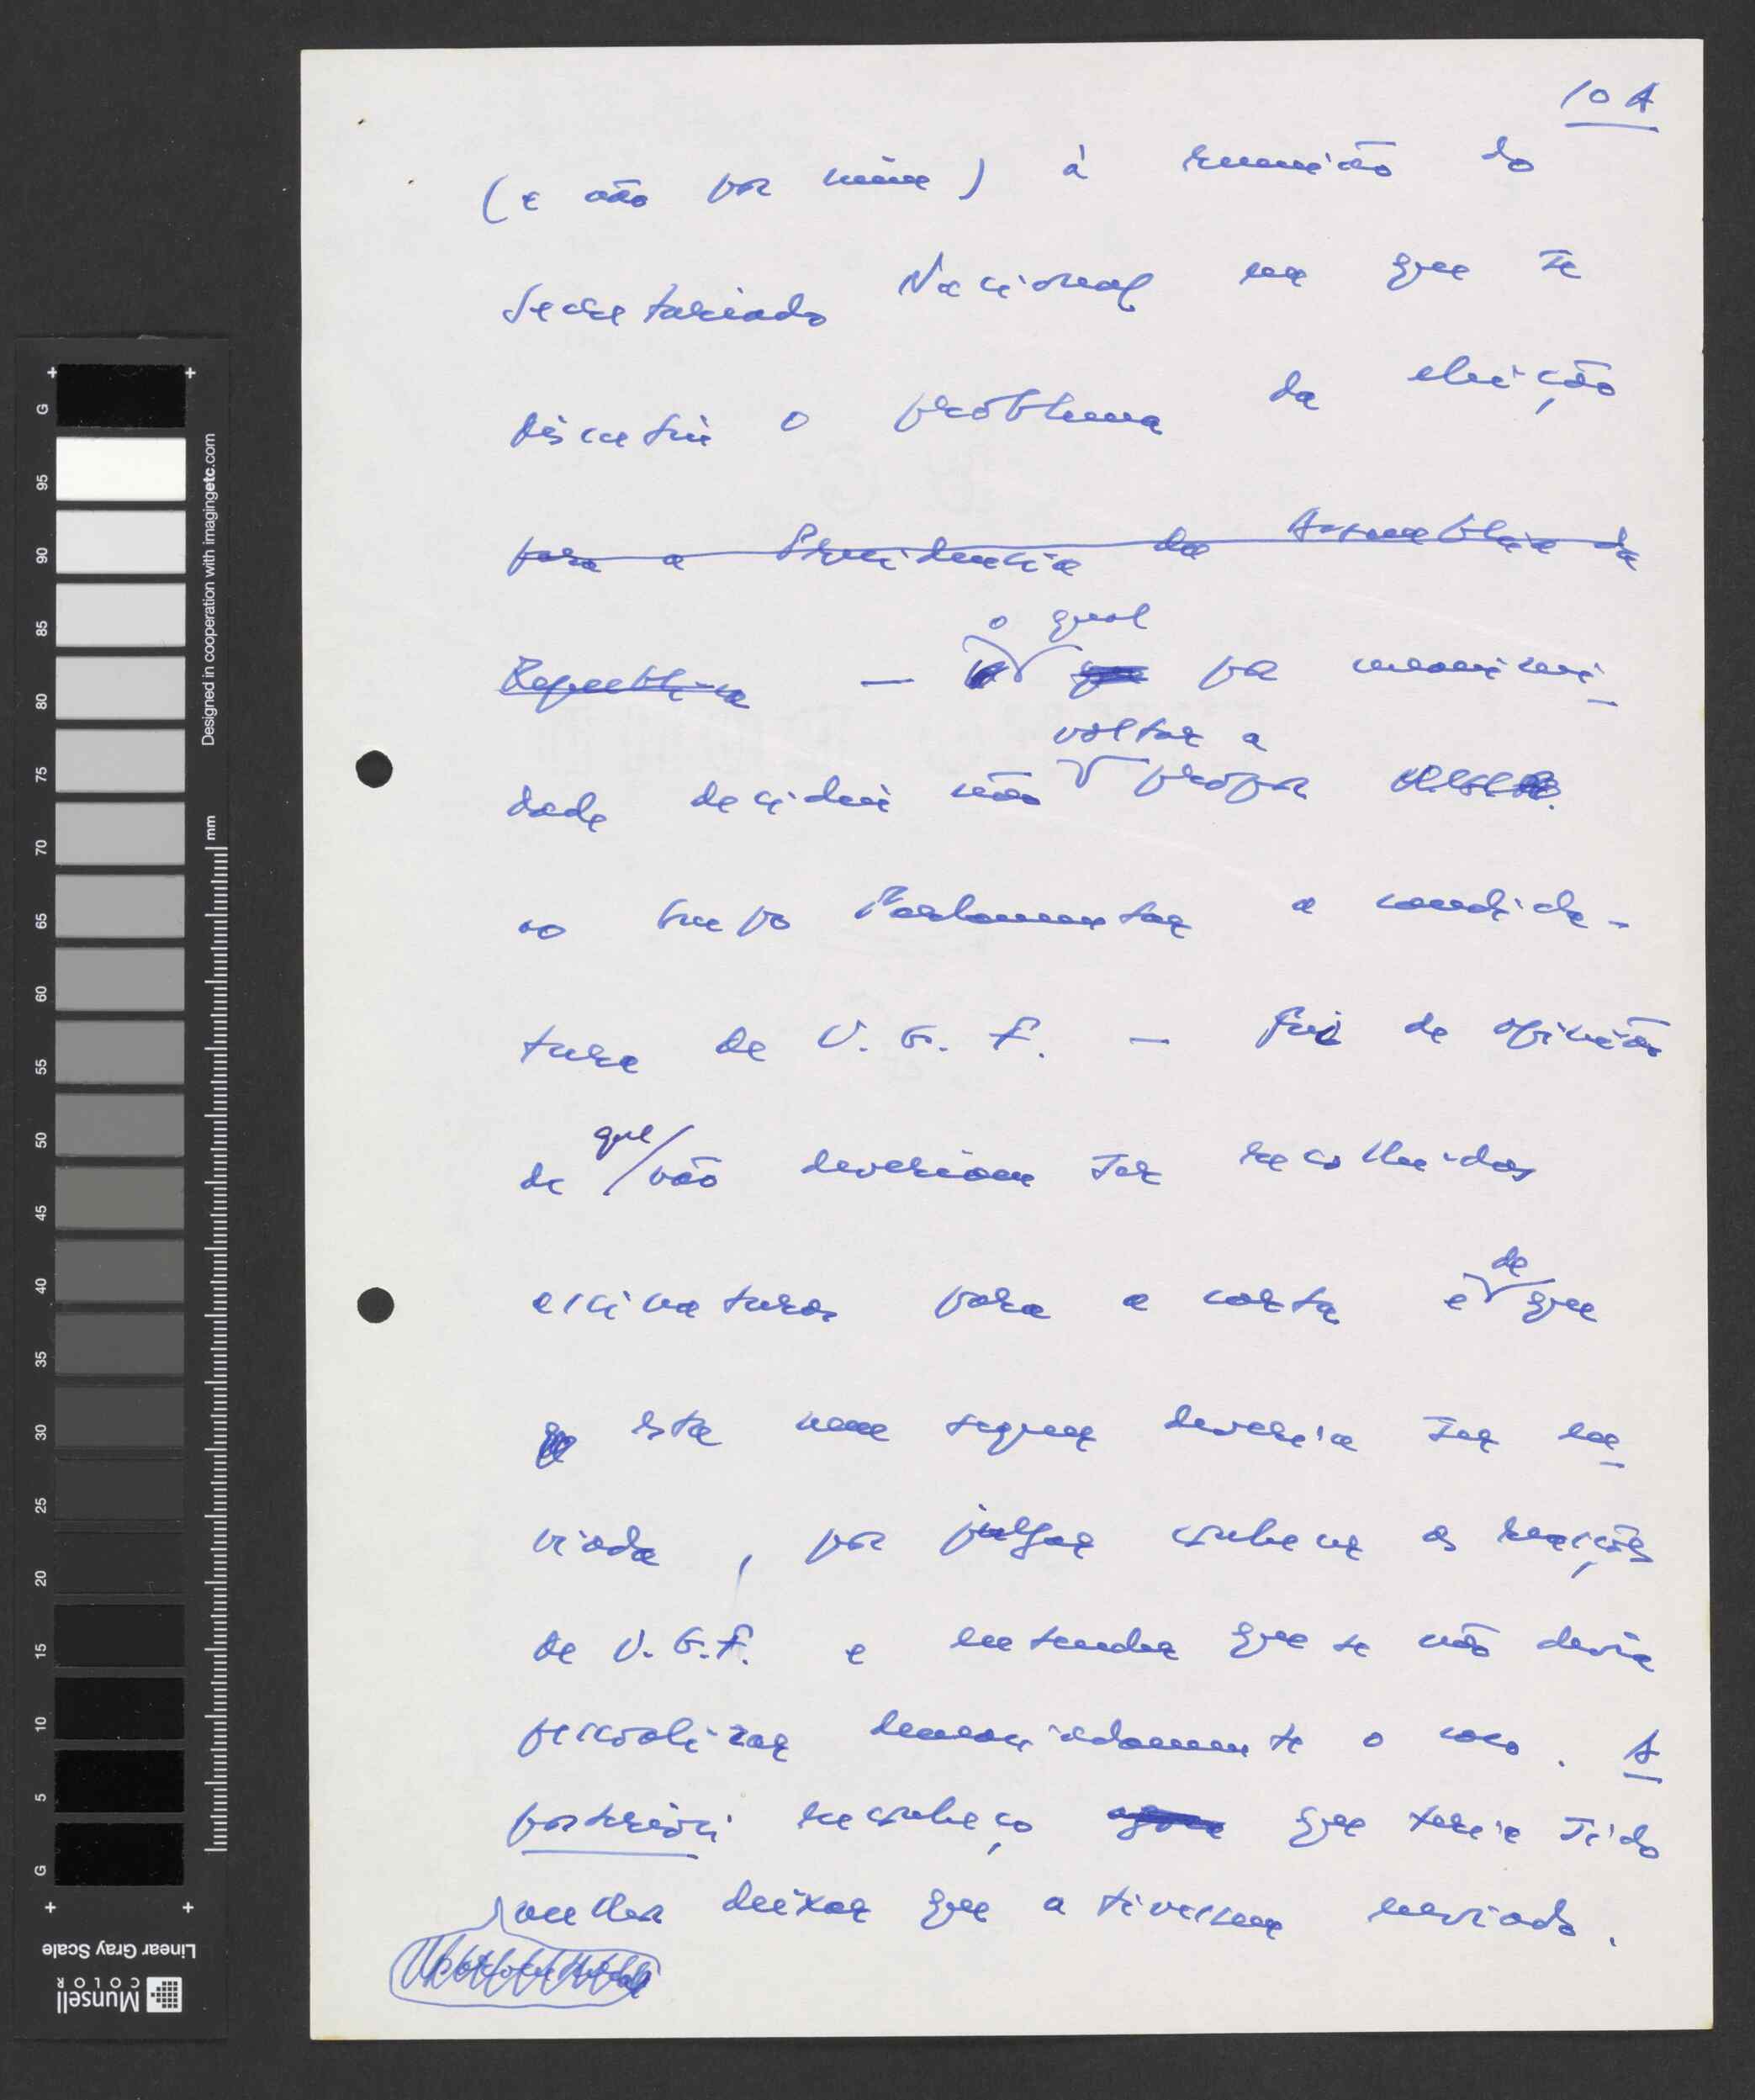 10 A
(e não por mim) à reunião do
Secretariado Nacional em que se
discutiu o problema da eleição
para a Presidência da Assembleia da
República — o qual por unanimi-
dade decidiu não voltar a propor
ao Grupo Parlamentar a candida-
tura de V. G. F. — fui de opinião
de que não deveriam ser recolhidas
assinaturas para a carta e de que
esta nem sequer deveria ser en-
viada, por julgar conhecer as reacções
de V. G. F. e entender que se não devia
personalizar demasiadamente o caso. A
posteriori reconheço que teria sido
melhor deixar que a tivessem enviado.
G
95
90
85
80
75
70
65
60
55
50
45
40
35
30
25
20
15
10
5
G
Designed in cooperation with imagingetc.com
mm
Linear Gray Scale
Munsell
COLOR